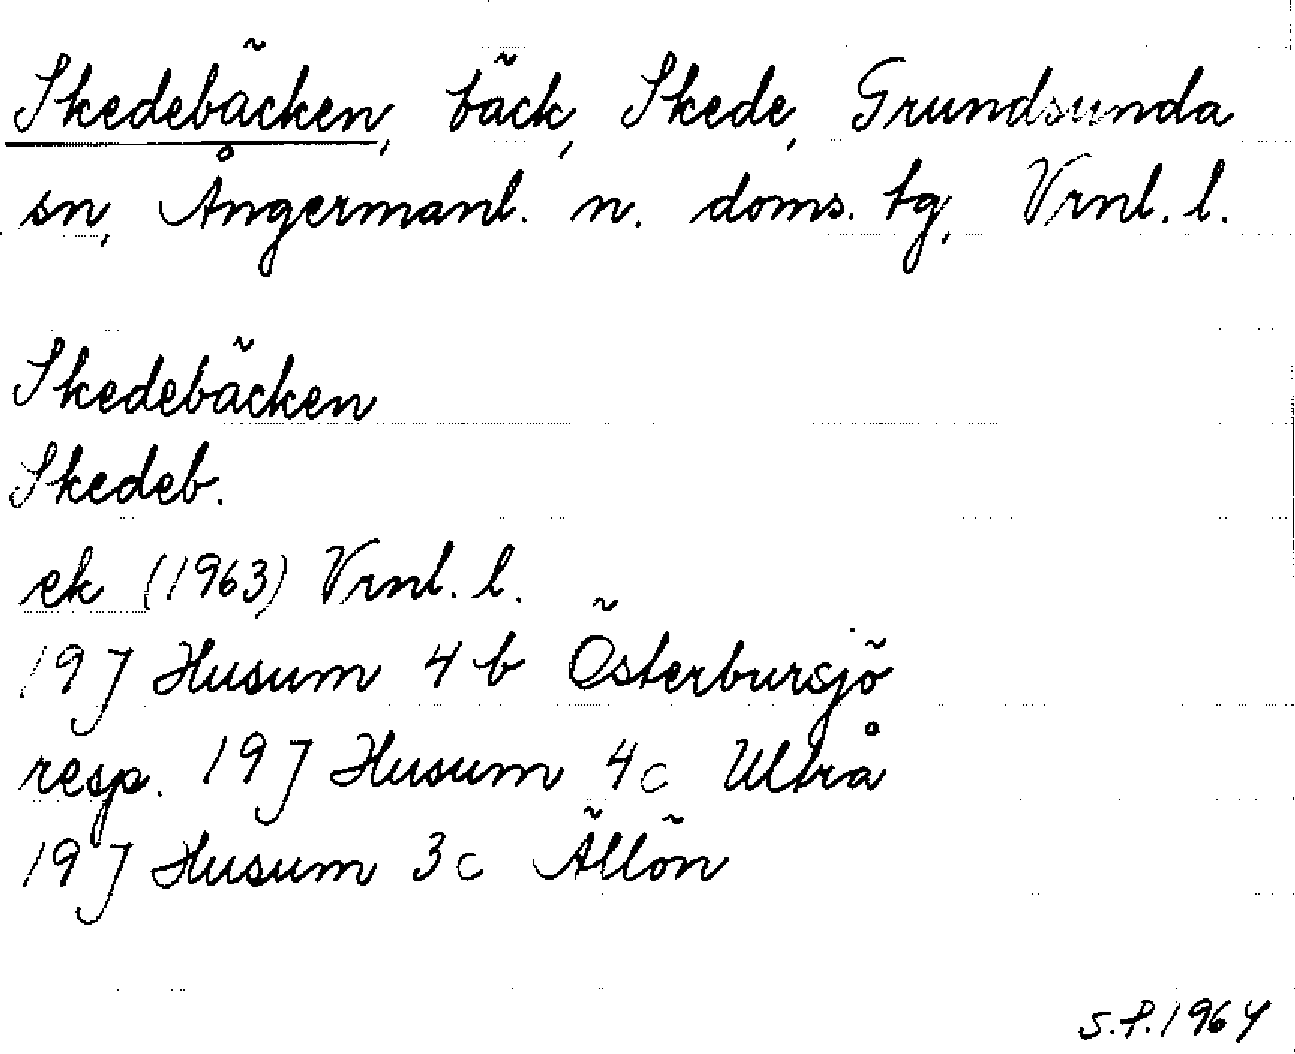 Skedebäcken, bäck, Skede, Grundsunda
sn, Ångermanl. n. doms. tg, Vrnl. l.
Skedebäcken
Skedeb.
ek (1963) Vrnl. l.
19J Husum 4 b Österbursjö
resp. 19J Husum 4c Ultrå
19J Husum 3c Ällön
S.F. 1964